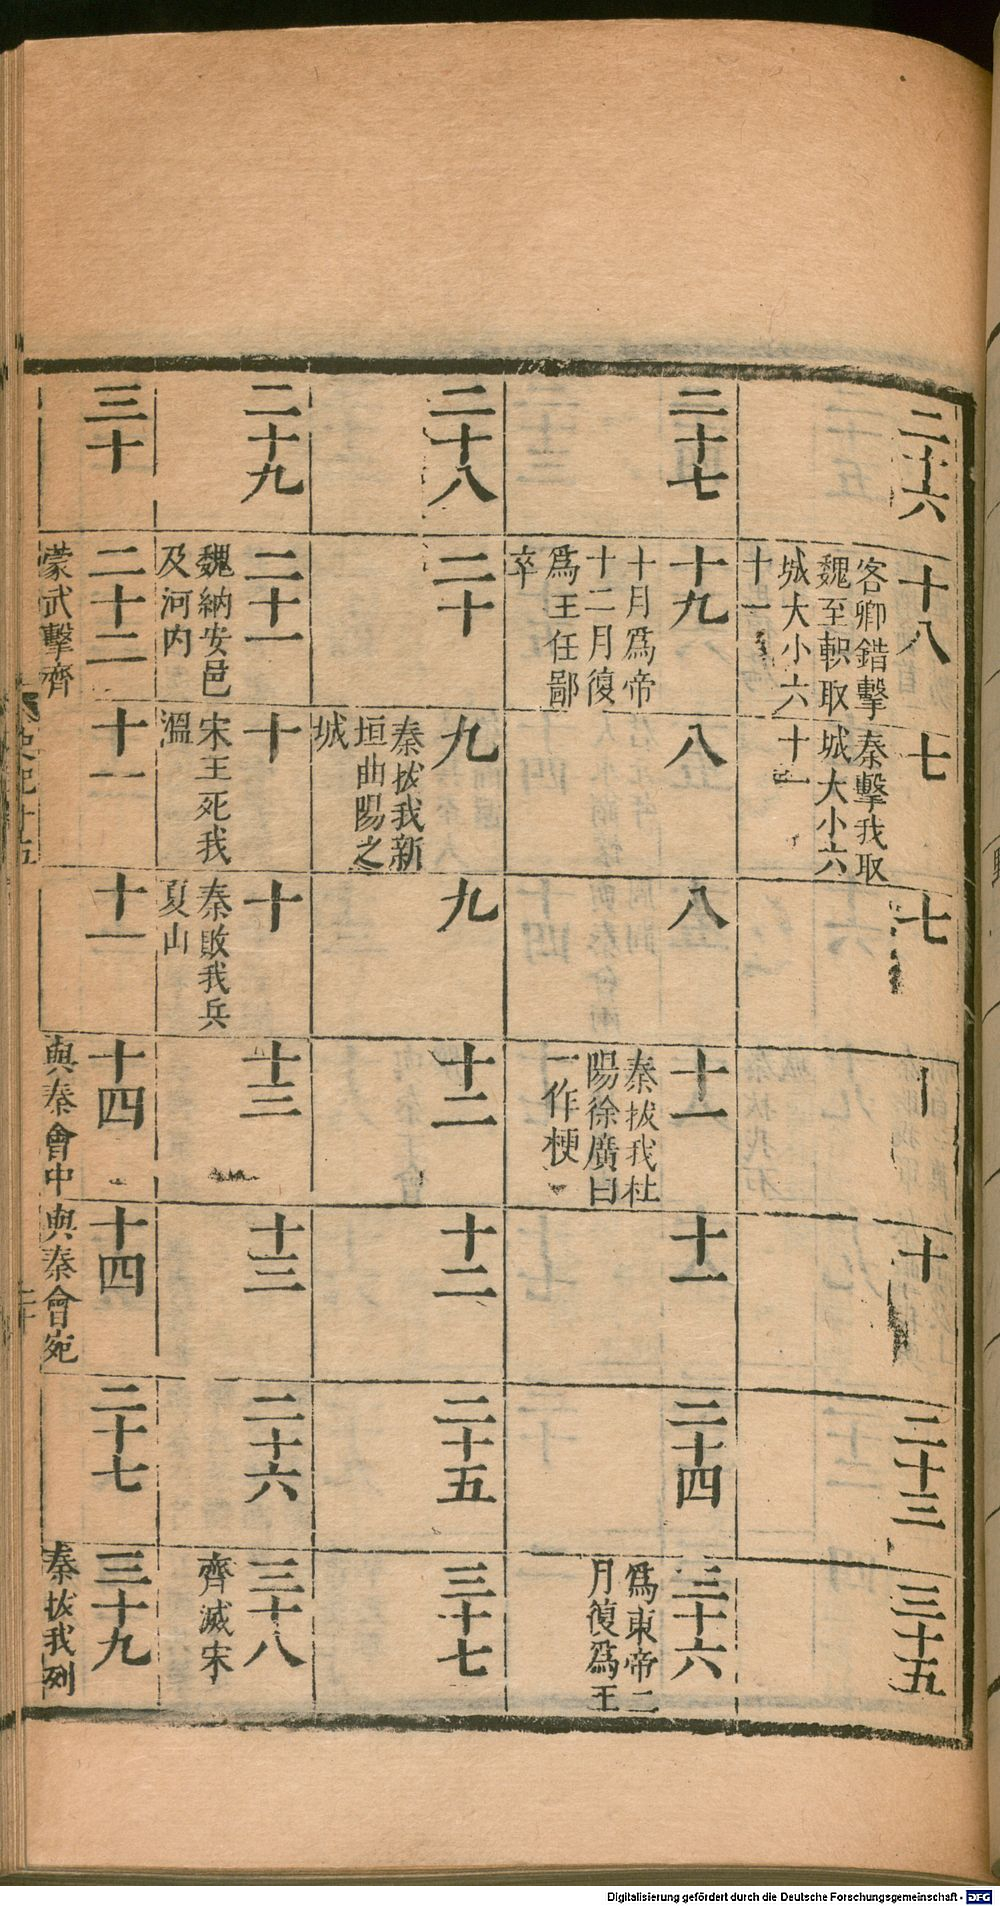 二十六
十八
客卿錯擊
魏至軹取
城大小六
十一
七
秦擊我取
城大小六
十一
七
十
二十三
三十五
二十七
十九
十月爲帝
十二月復
爲王任鄙
卒
八
八
十一
秦拔我杜
陽徐廣曰
一作梗
十一
二十四
三十六
爲東帝二
月復爲王
二十八
二十
九
秦拔我新
垣曲陽之
城
九
十二
十二
二十五
三十七
二十九
二十一
魏納安邑
及河內
十
宋王死我
溫
十
秦敗我兵
夏山
十三
十三
二十六
三十八
齊滅宋
三十
二十二
蒙武擊齊
十一
十一
十四
與秦會中
十四
與秦會宛
二十七
三十九
秦拔我列
史記十五
Digitalisierung gefördert durch die Deutsche Forschungsgemeinschaft - DFG